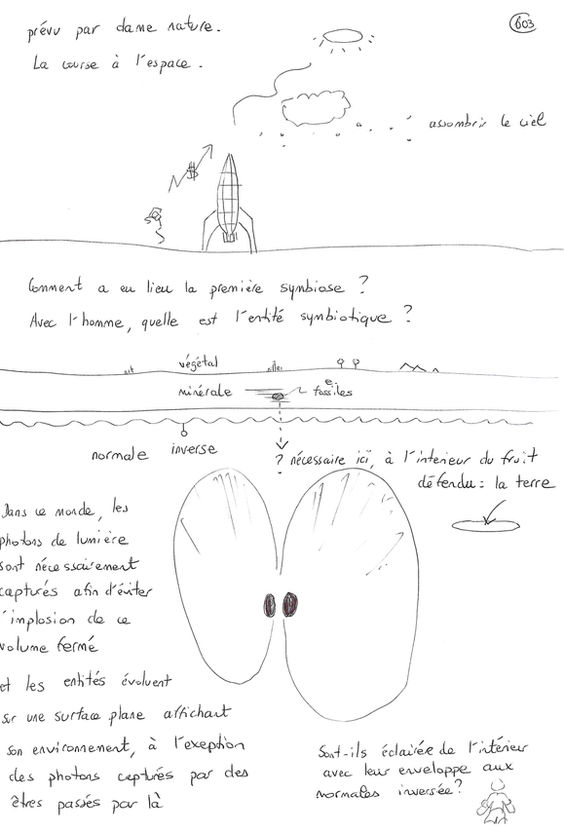 603
prévu par dame nature.
La course à l'espace.
assombrir le ciel
$
Comment a eu lieu la première symbiose ?
Avec l'homme, quelle est l'entité symbiotique ?
végétal
minérale
e.
fossiles
normale inverse
? nécessaire ici, à l'interieur du fruit
défendu : la terre
Dans ce monde, les
photons de lumière
sont nécessairement
capturés afin d'éviter
l'implosion de ce
volume fermé
et les entités évoluent
sur une surface plane affichant
son environnement, à l'exeption
des photons capturés par des
êtres passés par là
Sont-ils éclairée de l'intérieur
avec leur enveloppe aux
normales inversée ?